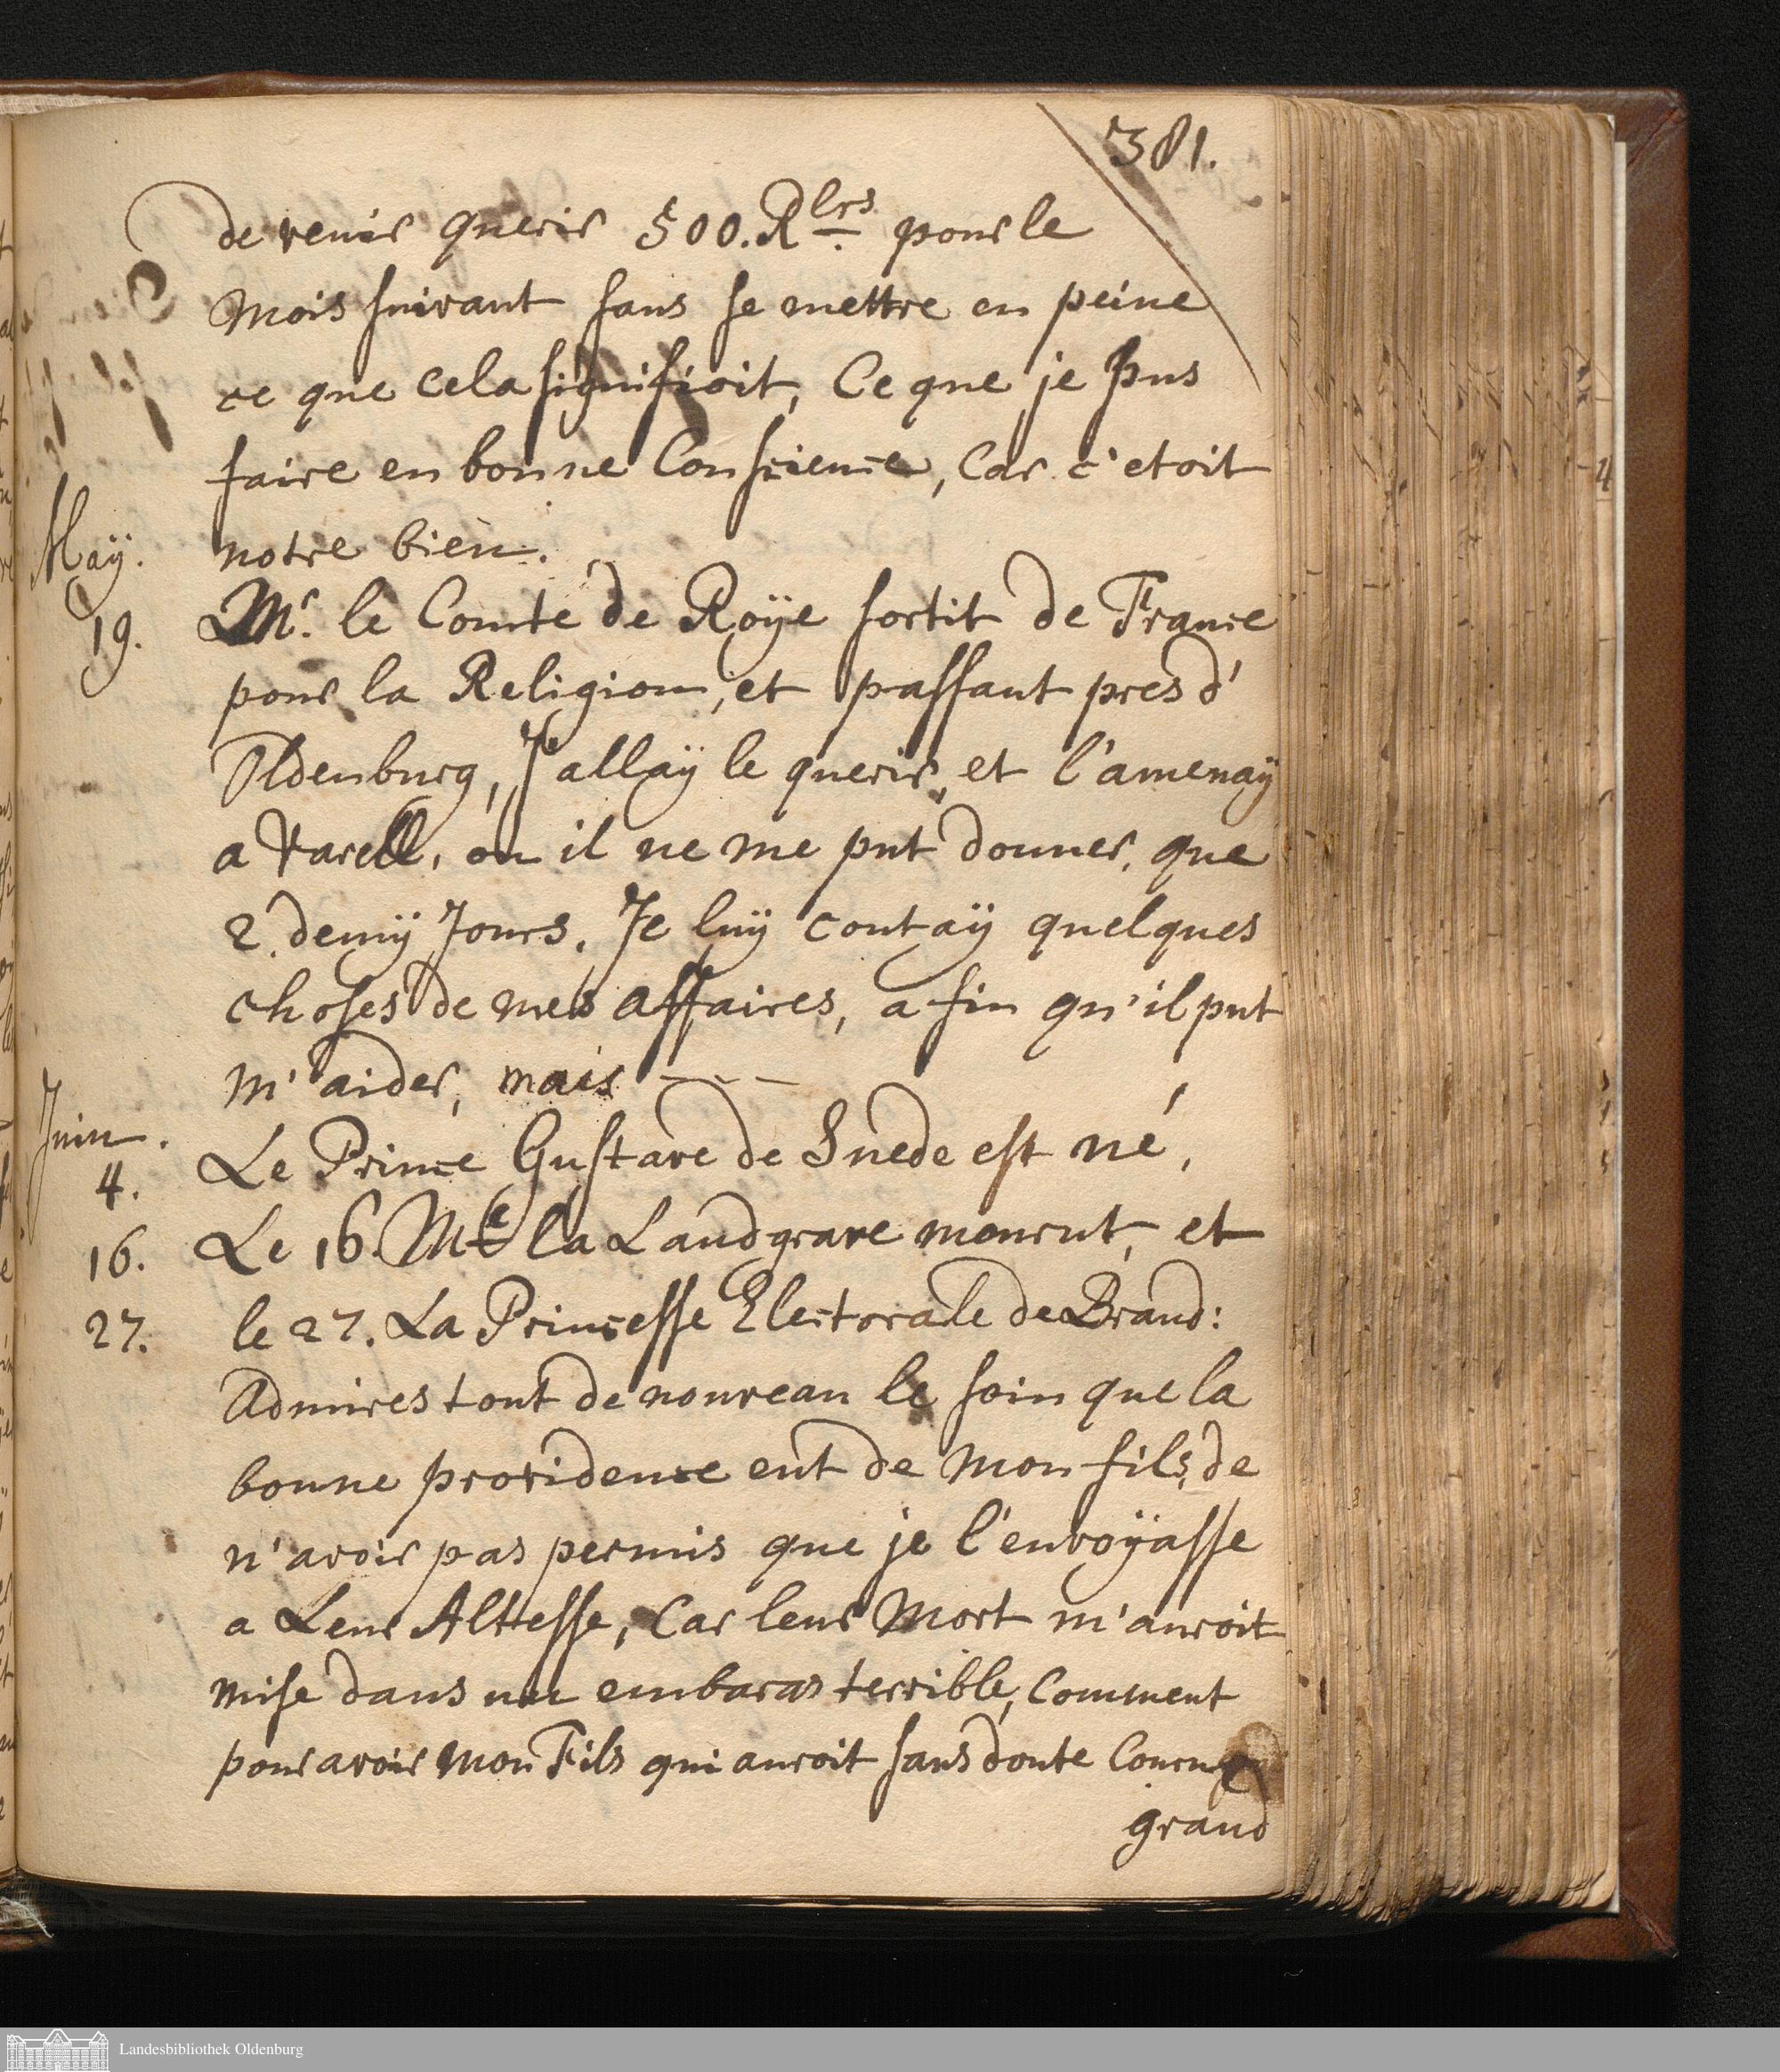 381.
de venir querir 500. Rlrs pour le
Mois suivant sans se mettre en peine
ce que cela signifioit, Ce que je pus
faire en bonne Conscience, Car c'etoit
notre bien.
Maÿ.
19. Mr. le Comte de Roÿe sortit de France
pour la Religion, et passant pres d'
Oldenburg, J'allaÿ le querir, et l'amenaÿ
a Varell, ou il ne me put donner, que
2. demÿ Jours. Je luÿ contaÿ quelques
choses de mes affaires, a fin qu'il put
m'aider, mais - - -
Juin.
4. Le Prince Gustave de Suede est né,
16. Le 16. Me la Landgrave mourut, et
27. le 27. La Princesse Electorale de Brand:
Admires tout de nouveau le soin que la
bonne providence eut de Mon fils, de
n'avoir pas permis que je l'envoÿasse
a Leur Altesse, Car leur Mort m'auroit
mise dans un embaras terrible, Comment
pour avoir Mon Fils qui auroit sans doute Couru
grand
Landesbibliothek Oldenburg